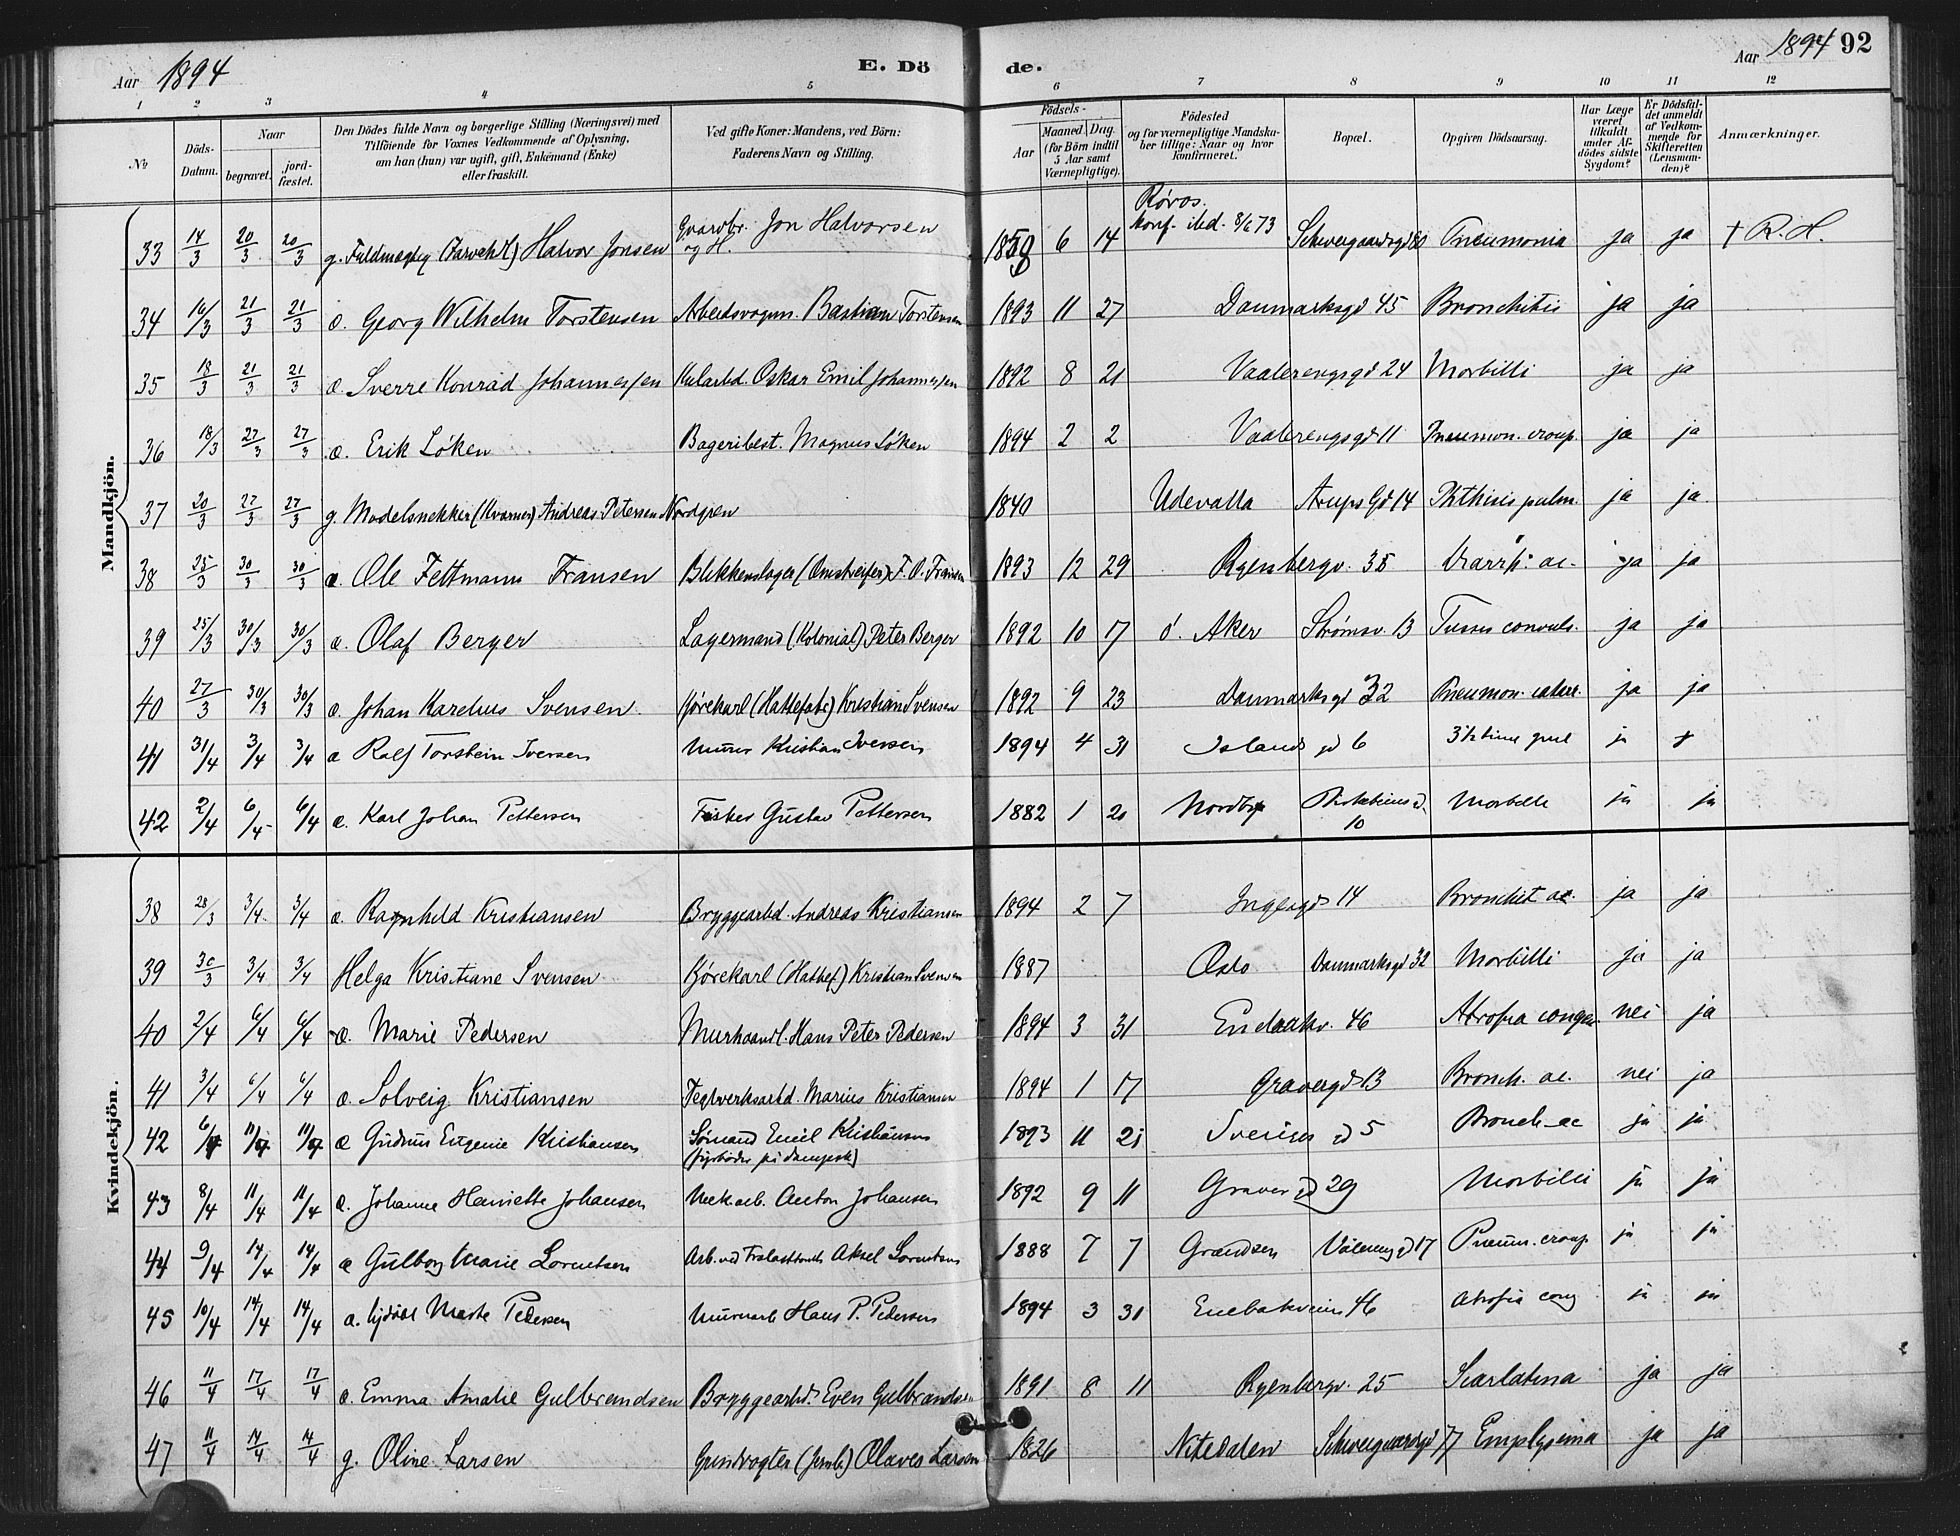 Aar 1894
E. Dö
de.
Aar 1894 92
1 2 3 4 5 6 7 8 9 10 11 12
No
Döds-Datum.
Naar
begravet.
jord-fæstet.
Den Dödes fulde Navn og borgerlige Stilling (Næringsvei) med
Tilföiende for Voxnes Vedkommende af Oplysning,
om han (hun) var ugift, gift, Enkemand (Enke)
eller fraskilt.
Ved gifte Koner: Mandens, ved Börn:
Faderens Navn og Stilling.
Födsels-
Aar
Maaned. Dag.
(for Börn indtil
5 Aar samt
Værnepligtige).
Födested
og for værnepligtige Mandska-
ber tillige: Naar og hvor
konfirmeret.
Bopæl.
Opgiven Dödsaarsag.
Har Læge
været
tilkaldt
under Af-
dödes sidste
Sygdom?
Er Dödsfal-
det anmeldt
af Vedkom-
mende for
Skifteretten
(Lensman-
den)?
Anmærkninger.
Mandkjön.
33 14/3 20/3 20/3 g. Fuldmægtig Halvor Jonsen Gaardbr. Jon Halvorsen og H. 6 14 Røros. konf. ibd. 8/6 73 Pneumonia ja ja † R. H.
34 16/3 21/3 21/3 Georg Wilhelm Torstensen Bastian Torstensen 1893 11 27 Danmarksgd 45 Bronchitis ja ja
35 18/3 21/3 21/3 æ. Sverre Konrad Johannessen Oskar Emil Johannessen 1892 8 21 Vaalerengsgd 24 Morbilli ja ja
36 18/3 27/3 27/3 æ. Erik Löken Bageribest. Magnus Löken 1894 2 2 Vaalerengsgd 11 Pneumon. croup. ja ja
37 20/3 27/3 27/3 g. Modelsnekker (Kværner) Andreas Petersen Nordgren 1840 Udevalla Arups Gd 14 Phthisis pulm. ja ja.
38 25/3 30/3 30/3 æ Ole Fettmann Fransen Blikkenslager (Omstreifer) F. O. Fransen 1893 12 29 Ryenbergv. 35 ac. ja ja
39 25/3 30/3 30/3 æ. Olaf Berger Lagermand (Kolonial) Peter Berger 1892 10 17 Ö. Aker Strømsv. 13 Tussis convuls. ja ja
40 27/3 30/3 30/3 æ. Johan Karelius Svensen Kjørekarl (Hattefabr) Kristian Svensen 1892 9 23 Danmarksgd 32 Pneumon. catarr. ja ja
41 31/4 3/4 3/4 æ Ralf Torstein Iversen Murer Kristian Iversen 1894 4 31 Islands gd 6 ja
42 2/4 6/4 6/4 æ. Karl Johan Pettersen Fisker Gustav Pettersen 1882 1 20 10 Morbilli ja ja
Kvindekjön.
38 28/3 3/4 3/4 æ. Ragnhild Kristiansen Bryggearbd. Andreas Kristiansen 1894 2 7 Ingesgd 14 Bronchit ac. ja ja
39 30/3 3/4 3/4 Helga Kristiane Svensen Kjørekarl (Hattef.) Kristian Svensen 1887 Oslo Danmarksgd 32 Morbilli ja ja
40 2/4 6/4 6/4 æ. Marie Pedersen Murhaandl. Hans Peter Pedersen 1894 3 31 46 Atrofia congen. nei ja
41 3/4 6/4 6/4 æ. Solveig Kristiansen Teglverksarbd. Marius Kristiansen 1894 1 17 Gravergd 13 Bronch. ac. nei ja
42 6/4 11/4 11/4 æ Gudrun Eugenie Kristiansen Sømand Emil Kristiansen
(fyrbøder på dampsk) 1893 11 Sveriges gd 5 Bronch ac ja ja
43 8/4 11/4 11/4 æ. Johanne Henriette Johansen Anton Johansen 1892 9 11 Graver gd 29 Morbilli ja ja
44 9/4 14/4 14/4 æ Gulborg Marie Lorentsen Aksel Lorentsen 1888 7 7 Grændsen 17 Pneum. croup ja ja
45 10/4 14/4 14/4 æ. Marte Pedersen Murarb Hans P. Pedersen 1894 3 31 Enebakveien 46 Atrofia cong ja ja
46 11/4 17/4 17/4 æ. Emma Amalie Gulbrandsen Bryggearbd. Even Gulbrandsen 1891 8 11 Ryenbergv. 25 Scarlatina ja ja
47 11/4 14/4 14/4 g. Oline Larsen (Jernb.) Olaves Larsen 1826 Nitedalen Schweigaardsgd 77 Emphysema ja ja